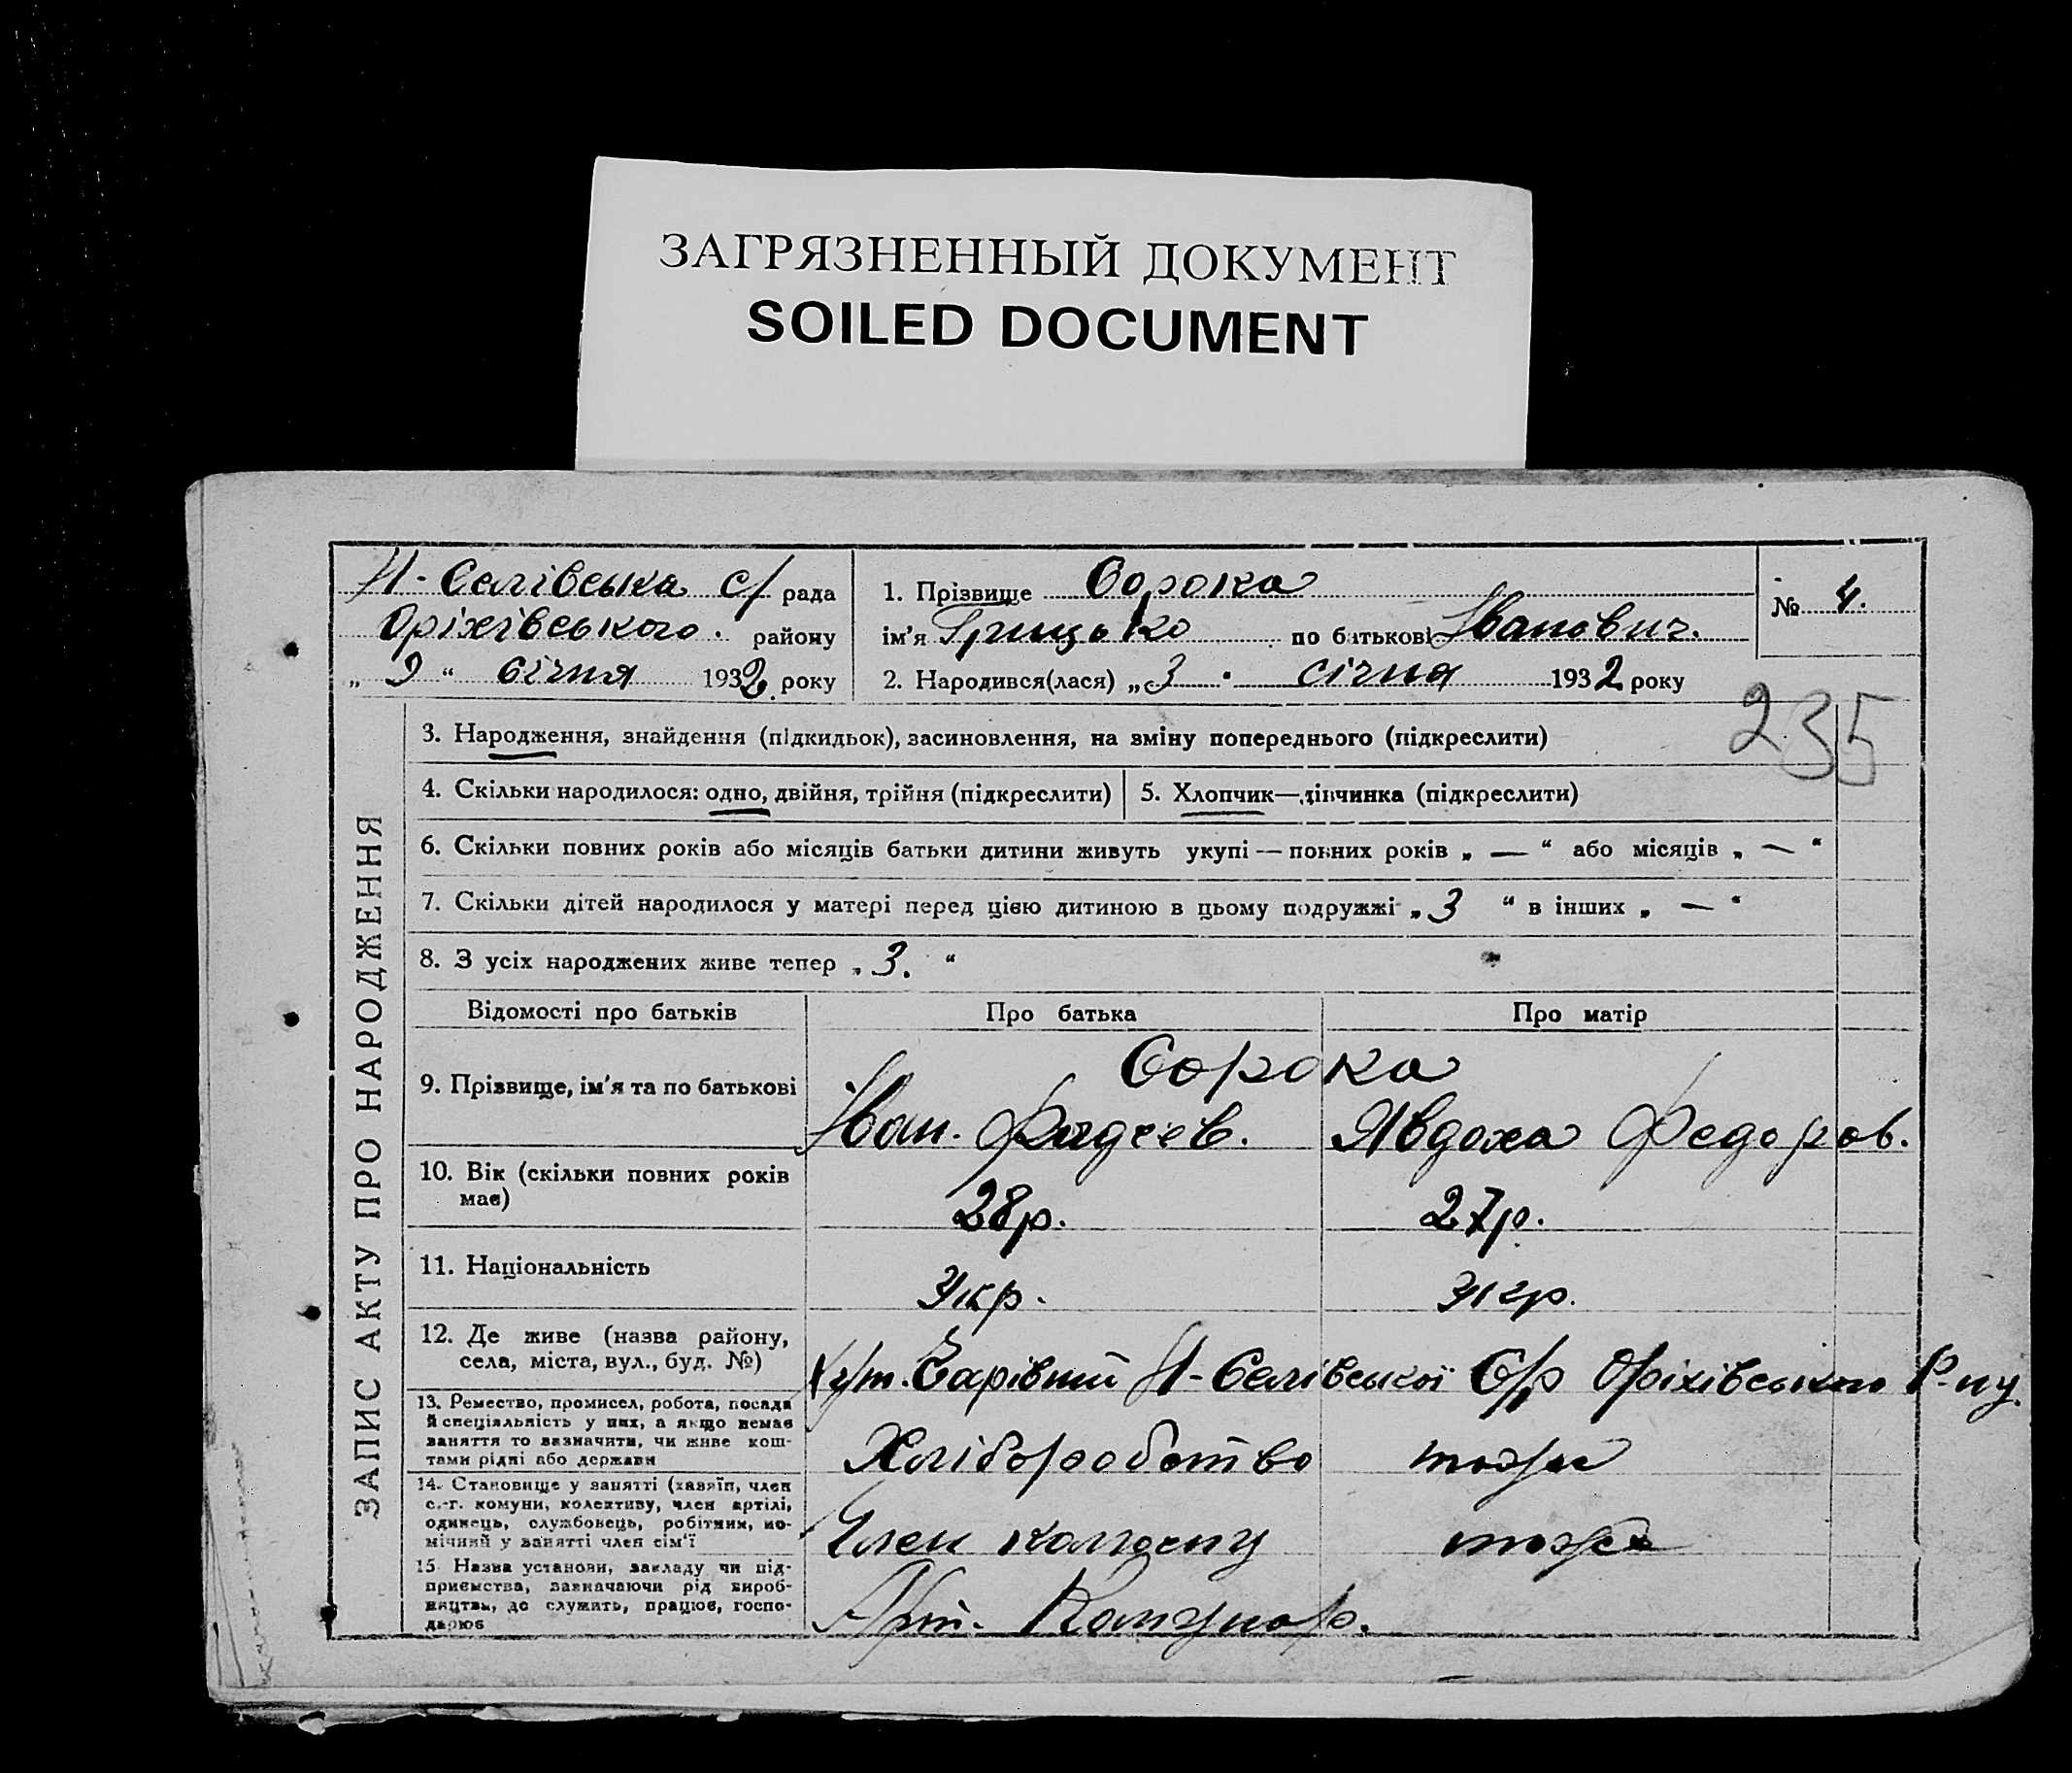 ЗАГРЯЗНЕННЫЙ ДОКУМЕНТ
SOILED DOCUMENT
Н-Селівська с/ рада
Оріхівського. району
„ 9 “ січня 1932 року
1. Прізвище Сорока
ім'я Грицько по батькові Іванович.
2. Народився(лася) „3 · січня 1932 року
№ 4.
235
ЗАПИС АКТУ ПРО НАРОДЖЕННЯ
3. Народження, знайдення (підкидьок), засиновлення, на зміну попереднього (підкреслити)
4. Скільки народилося: одно, двійня, трійня (підкреслити)
5. Хлопчик—дівчинка (підкреслити)
6. Скільки повних років або місяців батьки дитини живуть укупі — повних років „ — “ або місяців „ — “
7. Скільки дітей народилося у матері перед цією дитиною в цьому подружжі „ 3 “ в інших „ — “
8. З усіх народжених живе тепер „ 3. “
Відомості про батьків Про батька Про матір
9. Прізвище, ім'я та по батькові
Сорока
Іван. Фадеев. Явдоха Федоров.
10. Вік (скільки повних років
має)
28р. 27р.
11. Національність
Укр. Укр.
12. Де живе (назва району,
села, міста, вул., буд. №)
Хут. Н-Селівської С/р Оріхівського Р-ну.
13. Ремество, промисел, робота, посада
й спеціальність у них, а якщо немає
заняття то зазначити, чи живе кош-
тами рідні або держави
Хліборобство тоже
14. Становище у занятті (хазяїн, член
с.-г. комуни, колективу, член артілі,
одинець, службовець, робітник, по-
мічний у занятті член сім'ї
Член колгоспу тоже
15 Назва установи, закладу чи під-
приємства, зазначаючи рід вироб-
ництва, де служить, працює, госпо-
дарює
Арт.